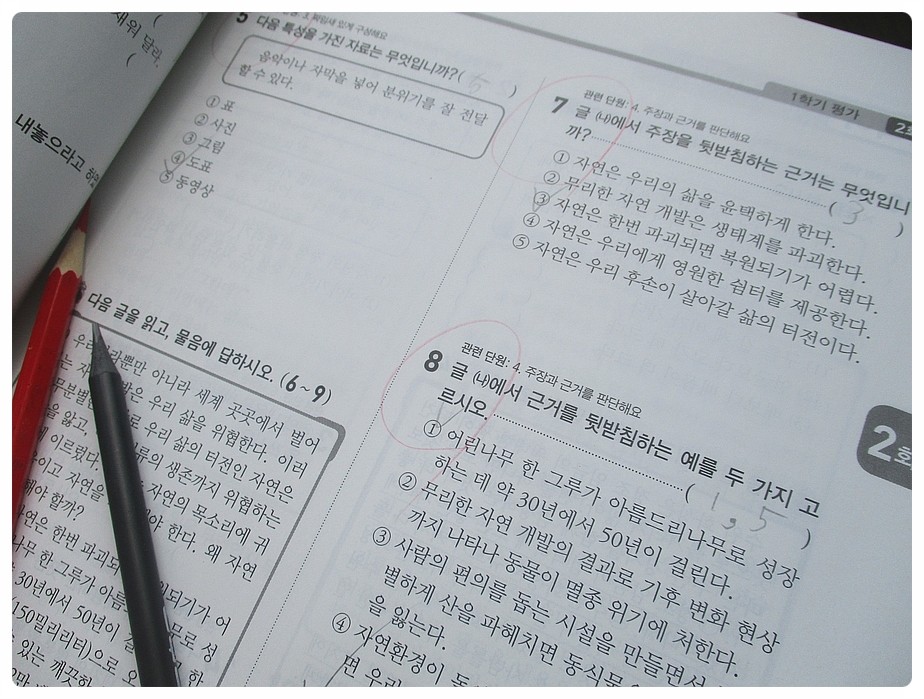 새워 달라.
(
내놓으라고
5
다음 특성을 가진 자료는 무엇입니까? ( 5 )
음악이나 자막을 넣어 분위기를 잘 전달
할 수 있다.
① 표
② 사진
③ 그림
④ 도표
⑤ 동영상
다음 글을 읽고, 물음에 답하시오. (6~9)
뿐만 아니라 세계 곳곳에서 벌어
은 우리 삶을 위협한다. 이러
로 우리 삶의 터전인 자연은
에 이르렀다. 류의 생존까지 위협하는
이고 자연을 자연의 목소리에 귀
야 한다. 왜 자연
해야 할까?
연은 한번 파괴되 되기가 어
나무 한 그루가 아름 무로 성
30년에서 50년이 한
(150밀리리터)으로 오
있는 깨끗한
1학기 평가
관련 단원: 4. 주장과 근거를 판단해요
7 글 (나)에서 주장을 뒷받침하는 근거는 무엇입니
까? ( 3 )
① 자연은 우리의 삶을 윤택하게 한다.
② 무리한 자연 개발은 생태계를 파괴한다.
③ 자연은 한번 파괴되면 복원되기가 어렵다.
④ 자연은 우리에게 영원한 쉼터를 제공한다.
⑤ 자연은 우리 후손이 살아갈 삶의 터전이다.
관련 단원: 4. 주장과 근거를 판단해요
8 글 (나)에서 근거를 뒷받침하는 예를 두 가지 고
르시오. ( 1, 5 )
① 어린나무 한 그루가 아름드리나무로 성장
하는 데 약 30년에서 50년이 걸린다.
② 무리한 자연 개발의 결과로 기후 변화 현상
까지 나타나 동물이 멸종 위기에 처한다.
③ 사람의 편의를 돕는 시설을 만들면서
별하게 산을 파헤치면 동식물
을 잃는다.
④ 자연환경이
면 우리
2회